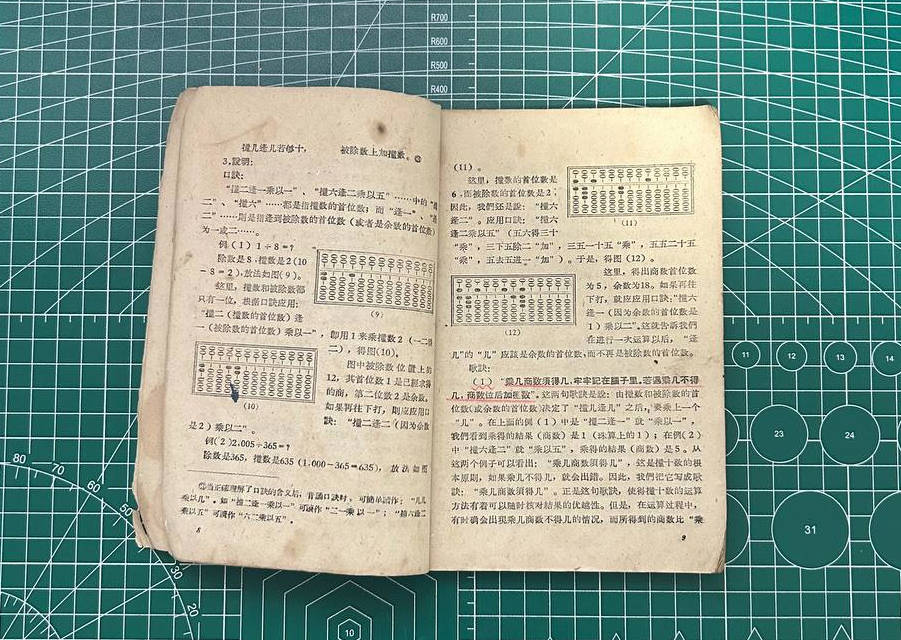 R700
R600
R500
R400
撞几逢几若够十，被除数上加撞数。②
3.說明：
口訣：
“撞二逢一乘以一”、“撞六逢二乘以五”……中的“撞
二”、“撞六”……都是指撞数的首位数；而“逢一”、“逢
二”……則是指逢到被除数的首位数（或者是余数的首位数）
为一或二……。
例（1）1÷8＝？
除数是8，撞数是2(10
－8＝2)，放法如图(9)。
这里，撞数和被除数都
只有一位，根据口訣应用：
“撞二（撞数的首位数）逢
一（被除数的首位数）乘以一”，
(9)
即用1来乘撞数2（一二得
二），得图(10)。
图中被除数位置上的
12，其首位数1是已經求得
的商，第二位数2是余数。
如果再往下打，則应应用口
訣：“撞二逢二（因为余数
(10)
是2）乘以二”。
例(2)2.005÷365＝？
除数是365，撞数是635(1,000－365＝635)，放法如图
②当正確理解了口訣的含义后，背誦口訣时，可簡单讀作：“几几
乘以几”。如“撞二逢一乘以一”可讀作“二一乘以一”；“撞六逢二
乘以五”可讀作“六二乘以五”。
8
(11)。
这里，撞数的首位数是
6，而被除数的首位数是2；
因此，我們还是說：“撞六
逢二”。应用口訣：“撞六
逢二乘以五”（五六得三十
“乘”，三下五除二“加”，三五一十五“乘”，五五二十五
“乘”，五去五进一“加”）。于是，得图(12)。
(11)
(12)
这里，得出商数首位数
为5，余数为18。如果再往
下打，就应应用口訣：“撞六
逢一（因为余数的首位数是
1）乘以二”。这就告訴我們
在进行一次运算以后，“逢
几”的“几”应該是余数的首位数，而不再是被除数的首位数。
歌訣：
(1)“乘几商数須得几，牢牢記在脑子里，若遇乘几不得
几，商数位后加祖数”。这两句歌訣是說：由撞数和被除数的首
位数(或余数的首位数)决定了“撞几逢几”之后，要乘上一个
“几”。在上面的例（1）中是“撞二逢一”就“乘以一”，
我們看到乘得的結果（商数）是1（珠算上的1）；在例(2)
中“撞六逢二”就“乘以五”，乘得的結果（商数）是5。从
这两个例子可以看出：“乘几商数須得几”，这是撞十数的根
本原則，如果乘几不得几，就会出錯。因此，我們把它写成歌
訣：“乘几商数須得几”。正是这句歌訣，使得撞十数的运算
方法有着可以随时核对結果的优越性。但是，在运算过程中，
有时确会出現乘几商数不得几的情况，而所得到的商数比“乘
9
11
12
13
14
23
24
31
80
70
60
50
30
20
10